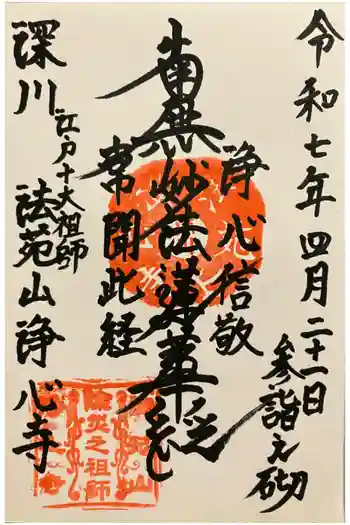 令和七年四月二十一日
参詣之砌
浄心信敬
南無妙法蓮華経
常聞此経
江戸十大祖師
深川
法苑山浄心寺
除災之祖師